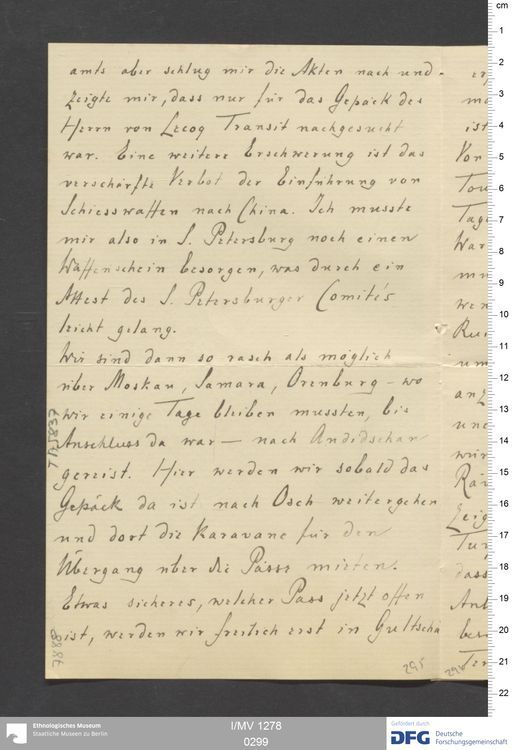 amts aber schlug mir die Akten nach und
zeigte mir, dass nur für das Gepäck des
Herrn von Lecoq Transit nachgesucht
war. Eine weitere Erschwerung ist das
verschärfte Verbot der Einführung von
Schiesswaffen nach China. Ich musste
mir also in S. Petersburg noch einen
Waffenschein besorgen, was durch ein
Attest des S. Petersburger Comités
leicht gelang.
Wir sind dann so rasch als möglich
über Moskau, Samara, Orenburg – wo
wir einige Tage bleiben mussten, bis
Anschluss da war – nach Andidschan
gereist. Hier werden wir sobald das
Gepäck da ist nach Osch weitergehen
und dort die Karavane für den
Übergang über die Pässe mieten.
Etwas sicheres, welcher Pass jetzt offen
ist, werden wir freilich erst in Gultscha
295
cm
1
2
3
4
5
6
7
8
9
10
11
12
13
14
15
16
17
18
19
20
21
22
Ethnologisches Museum
Staatliche Museen zu Berlin
I/MV 1278
0299
Gefördert durch
DFG Deutsche
Forschungsgemeinschaft